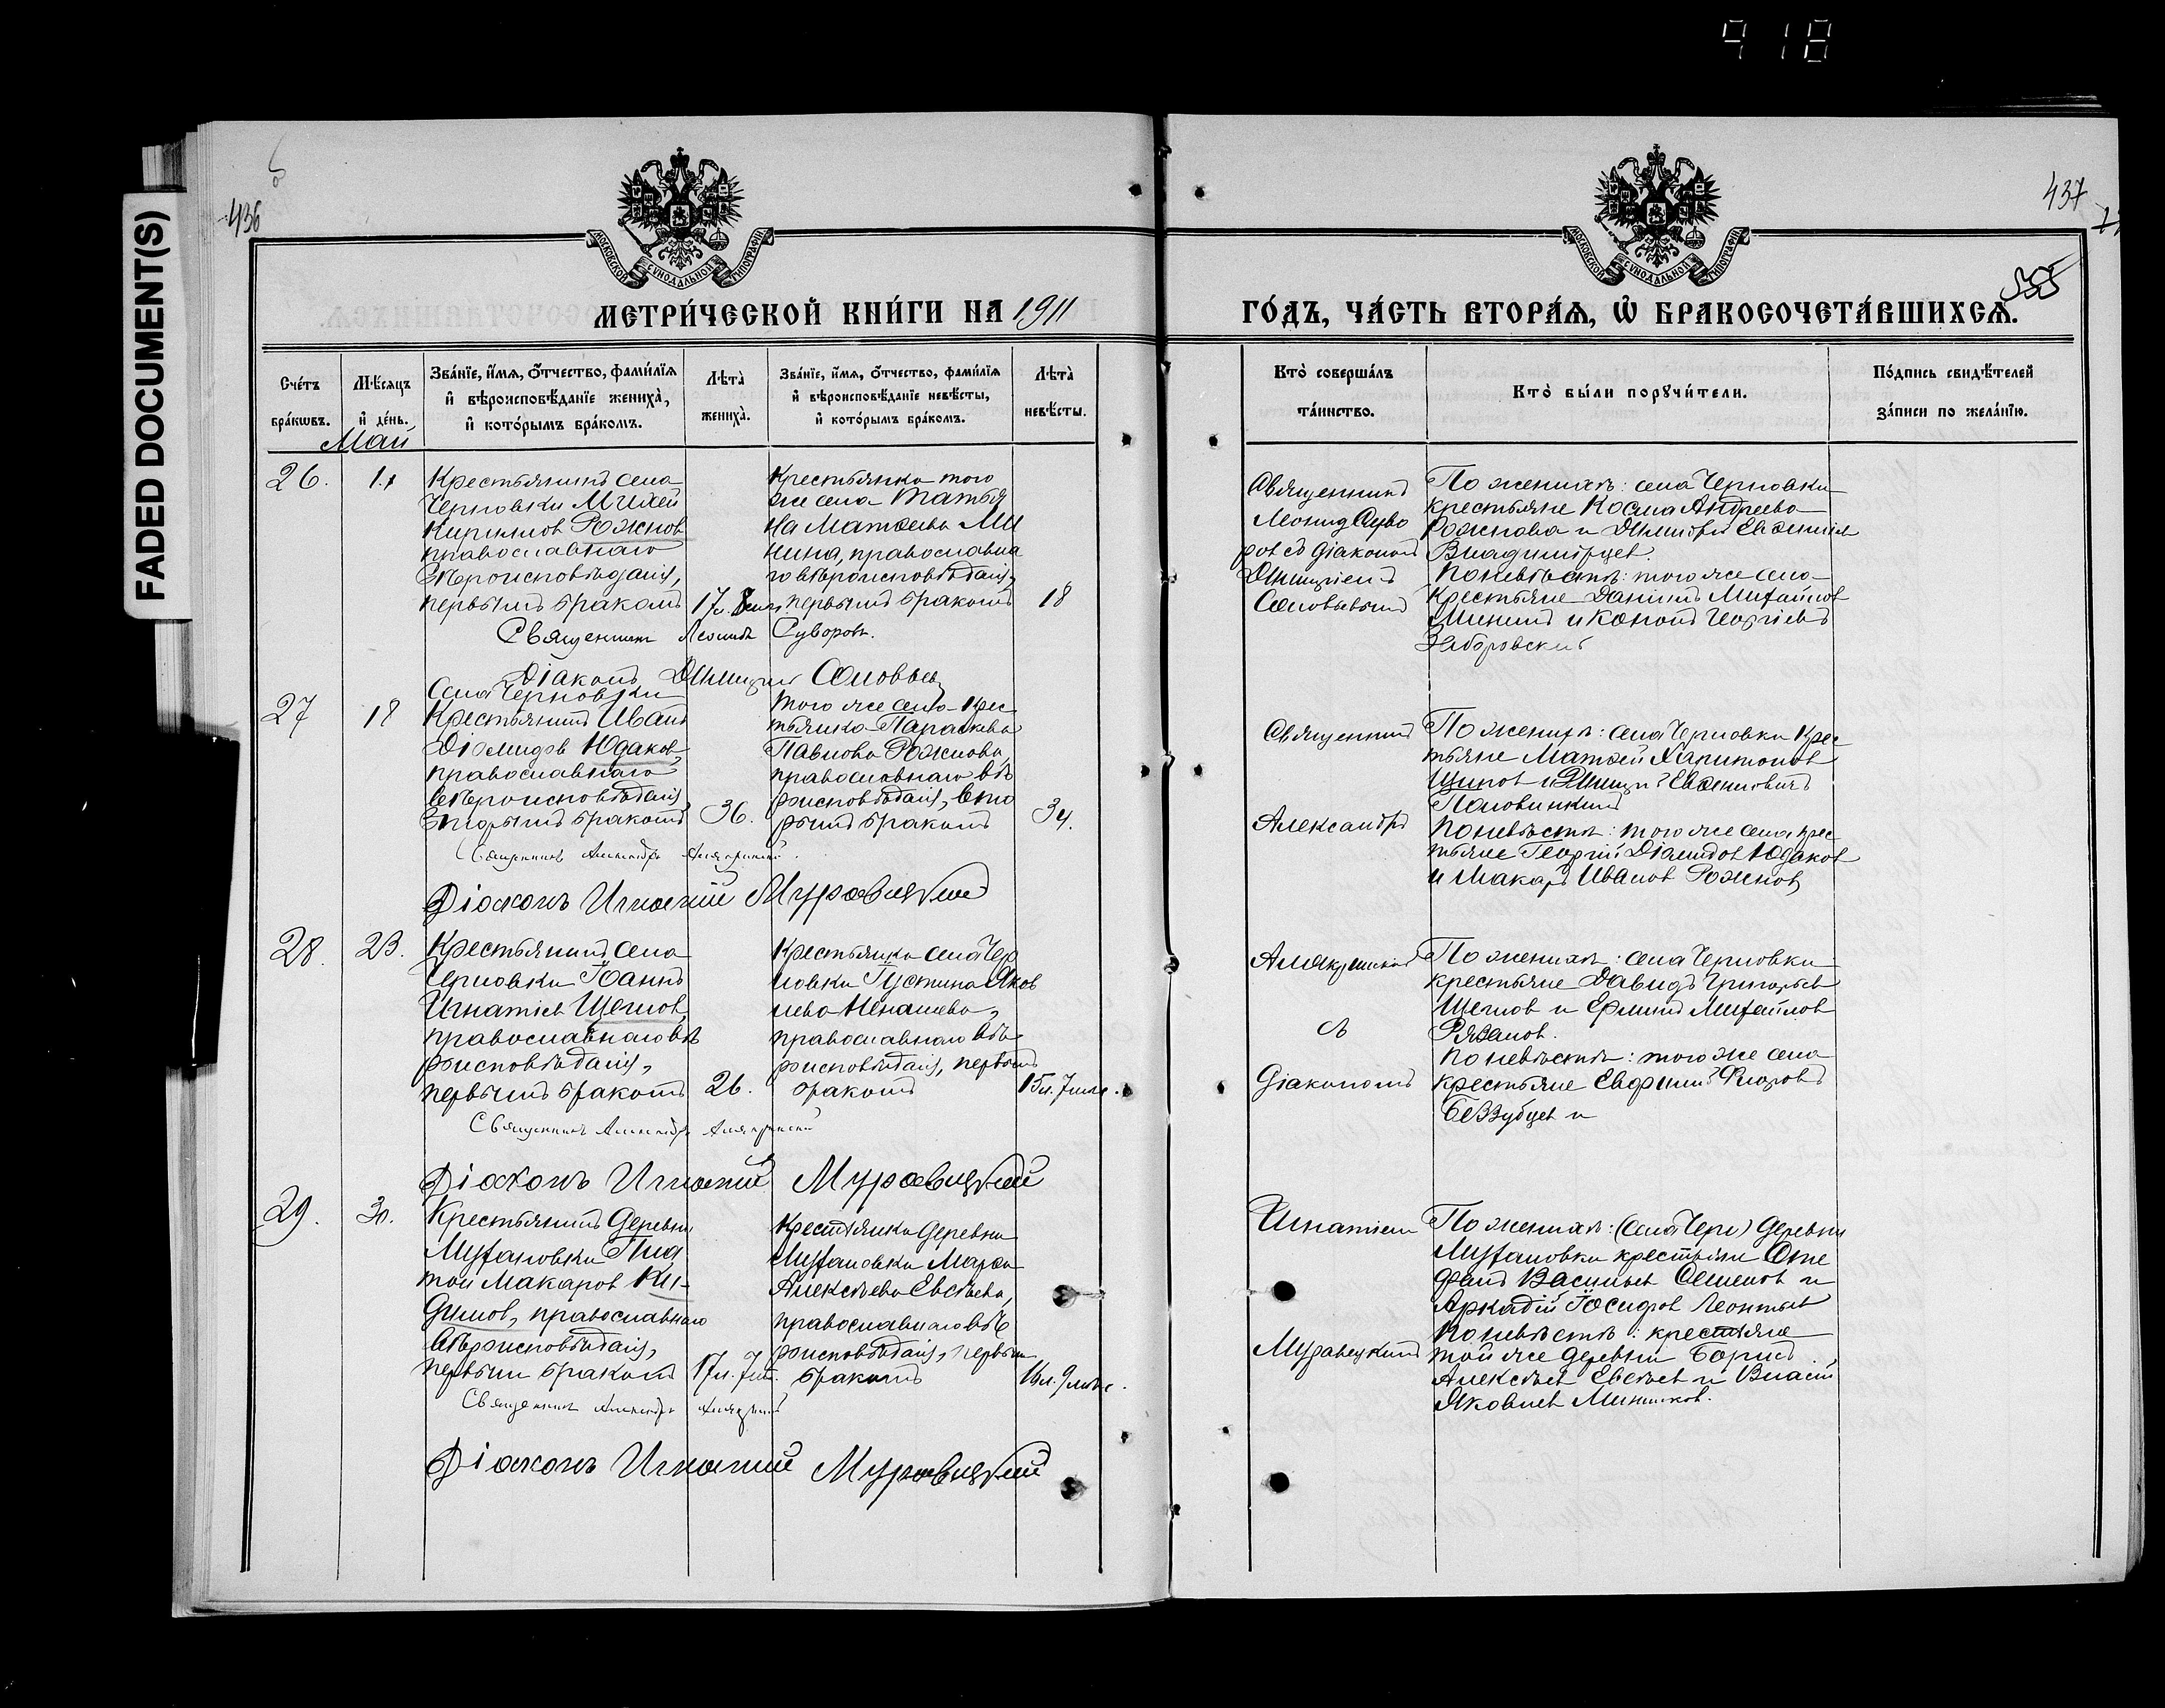 918
FADED DOCUMENT(S)
436
МОСКОВСКОЙ СѴНОДАЛЬНОЙ ТИПОГРАФІИ
МЕТРИ́ЧЕСКОЙ КНИ́ГИ НА 1911
Счéтъ бра́кѡвъ.
Мѣ́сяцъ и҆ де́нь.
Зва́нїе, и҆́мѧ, ѻ҆́тчество, фами́лїѧ и҆ вѣроисповѣ́данїе жениха̀, и҆ кото́рымъ бра́комъ.
Лѣта̀ жениха̀.
Зва́нїе, и҆́мѧ, ѻ҆́тчество, фами́лїѧ и҆ вѣроисповѣ́данїе невѣ́сты, и҆ кото́рымъ бра́комъ.
Лѣта̀ невѣ́сты.
Май
26.
1.
Крестьянинъ села
Черновки Михей
Кириллов Рожнов
православнаго
вѣроисповѣданія,
первымъ бракомъ
17л. 8 мѣс.
Крестьянка того
же села Татья
на Матѳеева Ми
нина, православна
го вѣроисповѣданія,
первымъ бракомъ
18
Священникъ Леонидъ Суворовъ.
Діаконъ Димитрій Соловьевъ
27
18
Села Черновки
Крестьянинъ Иванъ
Діомидов Юдаков,
православнаго
вѣроисповѣданія,
вторымъ бракомъ
36.
того же села Крес
тьянка Параскева
Павлова Рожнова,
православнаго вѣ
роисповѣданія, вто
рымъ бракомъ
34.
Священникъ Александръ Алякринскій.
Діаконъ Игнатій Муравецкій
28.
23.
Крестьянинъ села
Черновки Іоаннъ
Игнатіев Щеглов,
православнаго вѣ
роисповѣданія,
первымъ бракомъ
26.
Крестьянка села Чер
новки Іустина Яков
лева Ненашева,
православнаго вѣ
роисповѣданія, первымъ
бракомъ
15л. 7 мѣс.
Священникъ Александръ Алякринскій
Діаконъ Игнатій Муравецкій
29.
30.
Крестьянинъ деревни
Мухановки Пла
тон Макаров Ки
димов, православнаго
вѣроисповѣданія,
первым бракомъ
17л. 7м.
Крестьянка деревни
Мухановки Марѳа
Алексѣева Евсѣева,
православнаго вѣ
роисповѣданія, первым
бракомъ
16л. 9 мѣс.
Священникъ Александръ Алякринскій
Діаконъ Игнатій Муравецкій
437
МОСКОВСКОЙ СѴНОДАЛЬНОЙ ТИПОГРАФІИ
355
ГО́ДЪ, ЧА́СТЬ ВТОРА́Ѧ, Ѽ БРАКОСОЧЕТА́ВШИХСѦ.
Кто̀ соверша́лъ та́инство.
Кто̀ бы́ли порꙋчи́тели.
По́дпись свидѣ́телей за́писи по жела́нїю.
Священникъ
Леонид Суво
ров съ діакономъ
Димитріемъ
Соловьевымъ
По женихѣ: села Черновки
крестьяне Косма Андреева
Рожнова и Димитрій Евѳиміев
Владимірцев.
По невѣстѣ: того же села
Крестьяне Даніилъ Михайлов
Мининъ и Кононъ Георгіевъ
Заборовскій
Священникъ
Александръ
По женихѣ: села Черновки Крес
тьяне Матѳей Харитонов
Щипов и Димитрій Евѳимовичъ
Половинкинъ
По невѣстѣ: того же села крес
тьяне Георгій Діомидов Юдаков
и Макаръ Иванов Рожнов
Алякринскій
съ
Діакономъ
По женихѣ: села Черновки
крестьяне Давидъ Григорьев
Щеглов и Ефимъ Михайлов
Рязанов.
По невѣстѣ: того же села
крестьяне Евфимій Флоровъ
Беззубцев и
Игнатіем
Муравецкимъ
По женихѣ: (села Черн) деревни
Мухановки крестьяне Сте
фанъ Васильев Семенов и
Аркадій Іосифов Леонтьев
По невѣстѣ: крестьяне
той же деревни Борисъ
Алексѣев Евсѣев и Власій
Яковлев Минников.